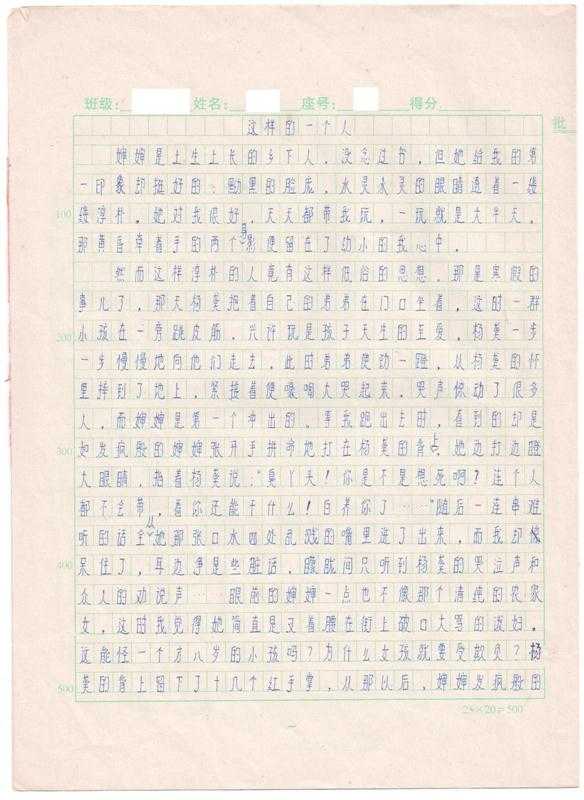 班级： 姓名： 座号： 得分
批
这样的一个人
婶婶是土生土长的乡下人，没念过书，但她给我的第
一印象却挺好的：黝黑的脸庞，水灵水灵的眼睛透着一缕
缕淳朴。她对我很好，天天都带我玩，一玩就是大半天。
100
那黄昏牵着手的两个身影便留在了幼小的我心中。
然而这样淳朴的人竟有这样低俗的思想。那是寒假的
事儿了，那天杨葵抱着自己的弟弟在门口坐着，这时一群
小孩在一旁跳皮筋，兴许玩是孩子天生的至爱，杨葵一步
200
一步慢慢地向他们走去，此时弟弟便动一蹬，从杨葵的怀
里掉到了地上，紧接着便嚎啕大哭起来，哭声惊动了很多
人，而婶婶是第一个冲出的。等我跑出去时，看到的却是
如发疯般的婶婶张开手拼命地打在杨葵的背上，她边打边瞪
300
大眼睛，指着杨葵说："臭丫头！你是不是想死啊？连个人
都不会带，看你还能干什么！白养你了……"随后一连串难
听的话全从她那张口水四处乱溅的嘴里迸了出来，而我却
呆住了，耳边净是些脏话，朦胧间只听到杨葵的哭泣声和
400
众人的劝说声……眼前的婶婶一点也不像那个清纯的农家
女，这时我觉得她简直是叉着腰在街上破口大骂的泼妇。
这能怪一个才八岁的小孩吗？为什么女孩就要受欺负？杨
葵的背上留下了十几个红手掌，从那以后，婶婶发疯般的
500
25×20=500